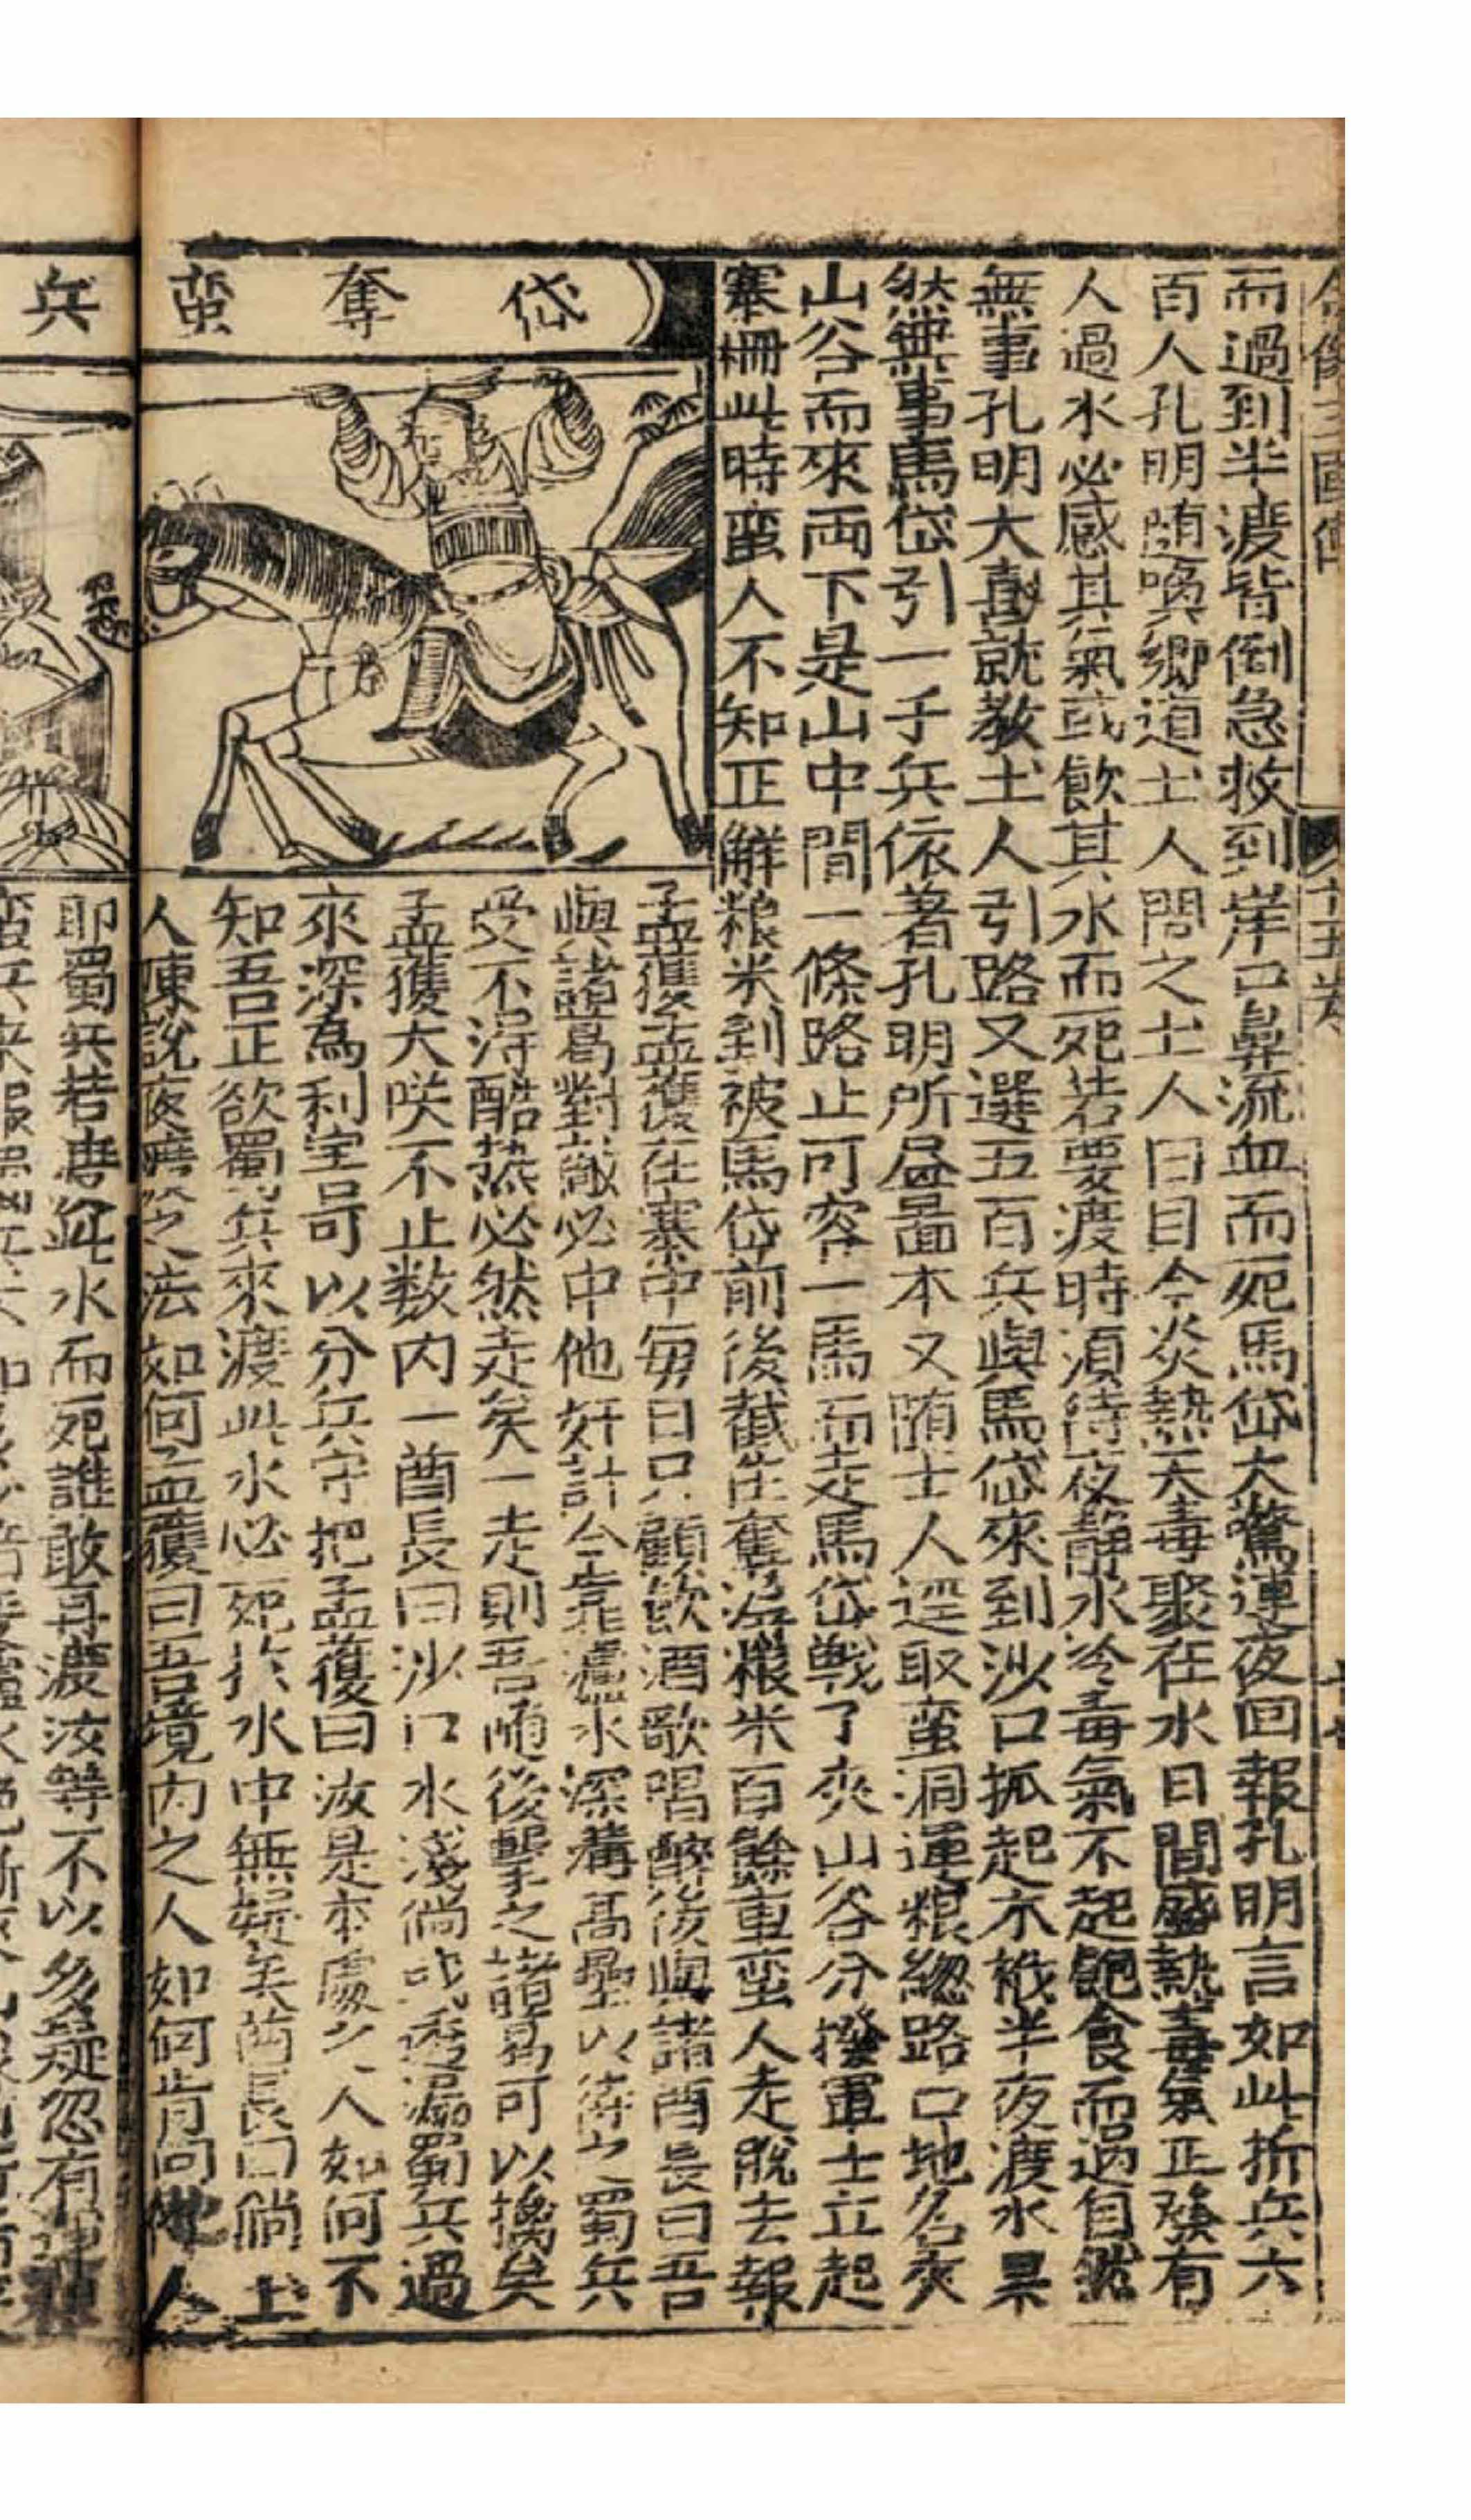 全像三國傳
十五卷
而過到半渡皆倒急救到岸口鼻流血而死馬岱大驚連夜回報孔明言如此折兵六
百人孔明随喚鄉道土人問之土人曰目今炎熱天毒聚在水日間盛熱毒氣正發有
人過水必感其氣或飲其水而死若要渡時須待夜靜水冷毒氣不起飽食而過自然
無事孔明大喜就教土人引路又選五百兵與馬岱來到沙口抓起木栰半夜渡水果
然無事馬岱引一千兵依著孔明所畫圖本又随土人逕取蛮洞運粮緫路口地名夾
山谷而來両下是山中間一條路止可容一馬而走馬岱戰了夾山谷分撥軍士立起
寨柵此時蛮人不知正解粮米到被馬岱前後截住奪粮米百餘車蛮人走脫去報
孟獲孟獲在寨中每日只顧飲酒歌唱醉後與諸酋長曰吾
與諸葛對敵必中他奸計今靠瀘水深溝高壘以待之蜀兵
受不得酷熱必然走矣一走則吾随後擊之諸葛可以擒矣
孟獲大咲不止数内一酋長曰沙口水淺倘或透漏蜀兵過
來深為利害可以分兵守把孟獲曰汝是本處之人如何不
知吾正欲蜀兵來渡此水必死於水中無疑矣酋長曰倘土
人陳說夜渡之法如何孟獲曰吾境内之人如何肯向他人
岱奪蛮兵
耶蜀兵若渡此水而死誰敢再渡汝等不以多疑忽有